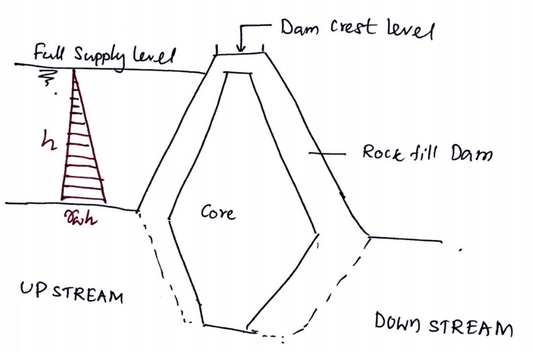 Dam Crest Level
Full Supply level
h
Rock fill Dam
Core
γwh
UP STREAM
DOWN STREAM